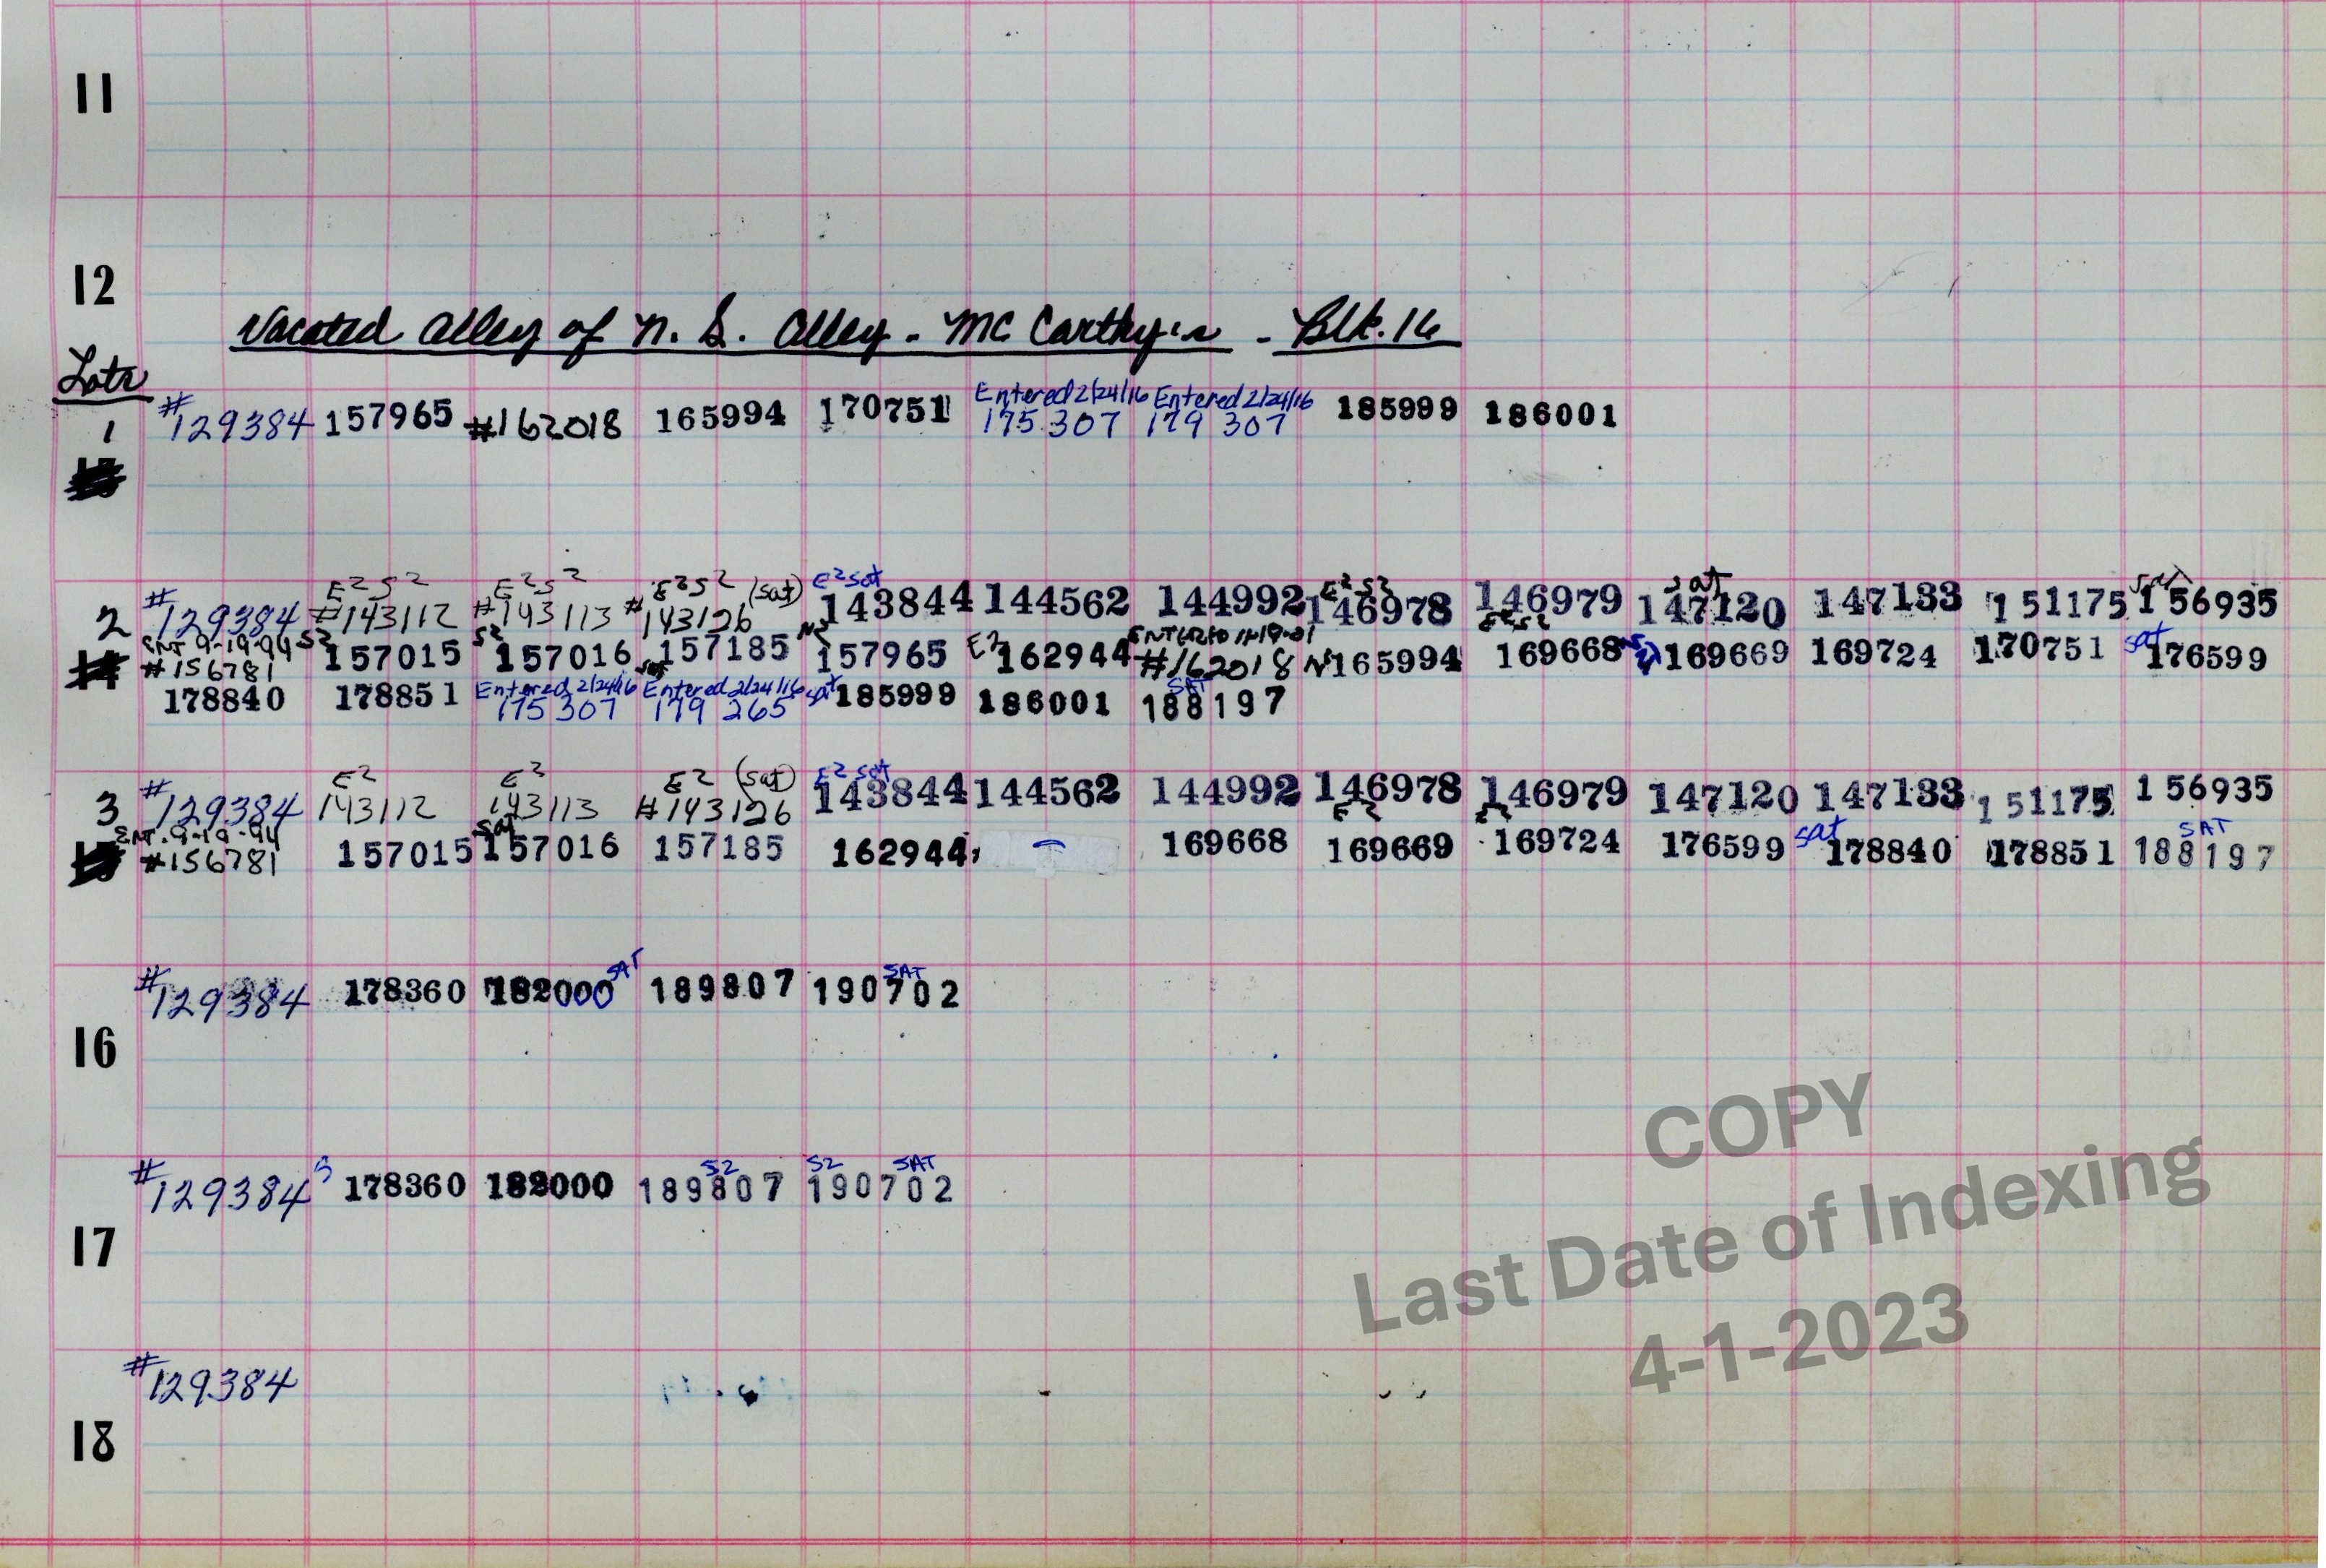 11
12
Vacated Alley of N. S. Alley - McCarthy's - Blk. 16
Lots
Entered 2/24/16 Entered 2/24/16
1 #129384 157965 #162018 165994 170751 175 307 179 307 185999 186001
E2 S2 E2 S2 E2 S2 (sat) E2 sat E2 S2 sat sat
2 #129384 #143112 #143113 #143126 143844 144562 144992 146978 146979 147120 147133 151175 156935
ENT 9-19-94 S2 S2 N2 E2 ENTERED 11-19-01 E2 S2
#156781 157015 157016 sat 157185 157965 162944 #162018 N2 165994 169668 169669 169724 170751 sat 176599
Entered 2/24/16 Entered 2/24/16 SAT
178840 178851 175 307 179 265 sat 185999 186001 188197
E2 E2 E2 (sat) E2 sat
3 #129384 143112 143113 #143126 143844 144562 144992 146978 146979 147120 147133 151175 156935
ENT. 9-19-94 sat E2 E2 SAT
#156781 157015 157016 157185 162944, 169668 169669 169724 176599 sat 178840 178851 188197
SAT SAT
#129384 178360 182000 189807 190702
16
S2 S2 SAT
#129384 178360 182000 189807 190702
17
#129384
18
COPY
Last Date of Indexing
4-1-2023